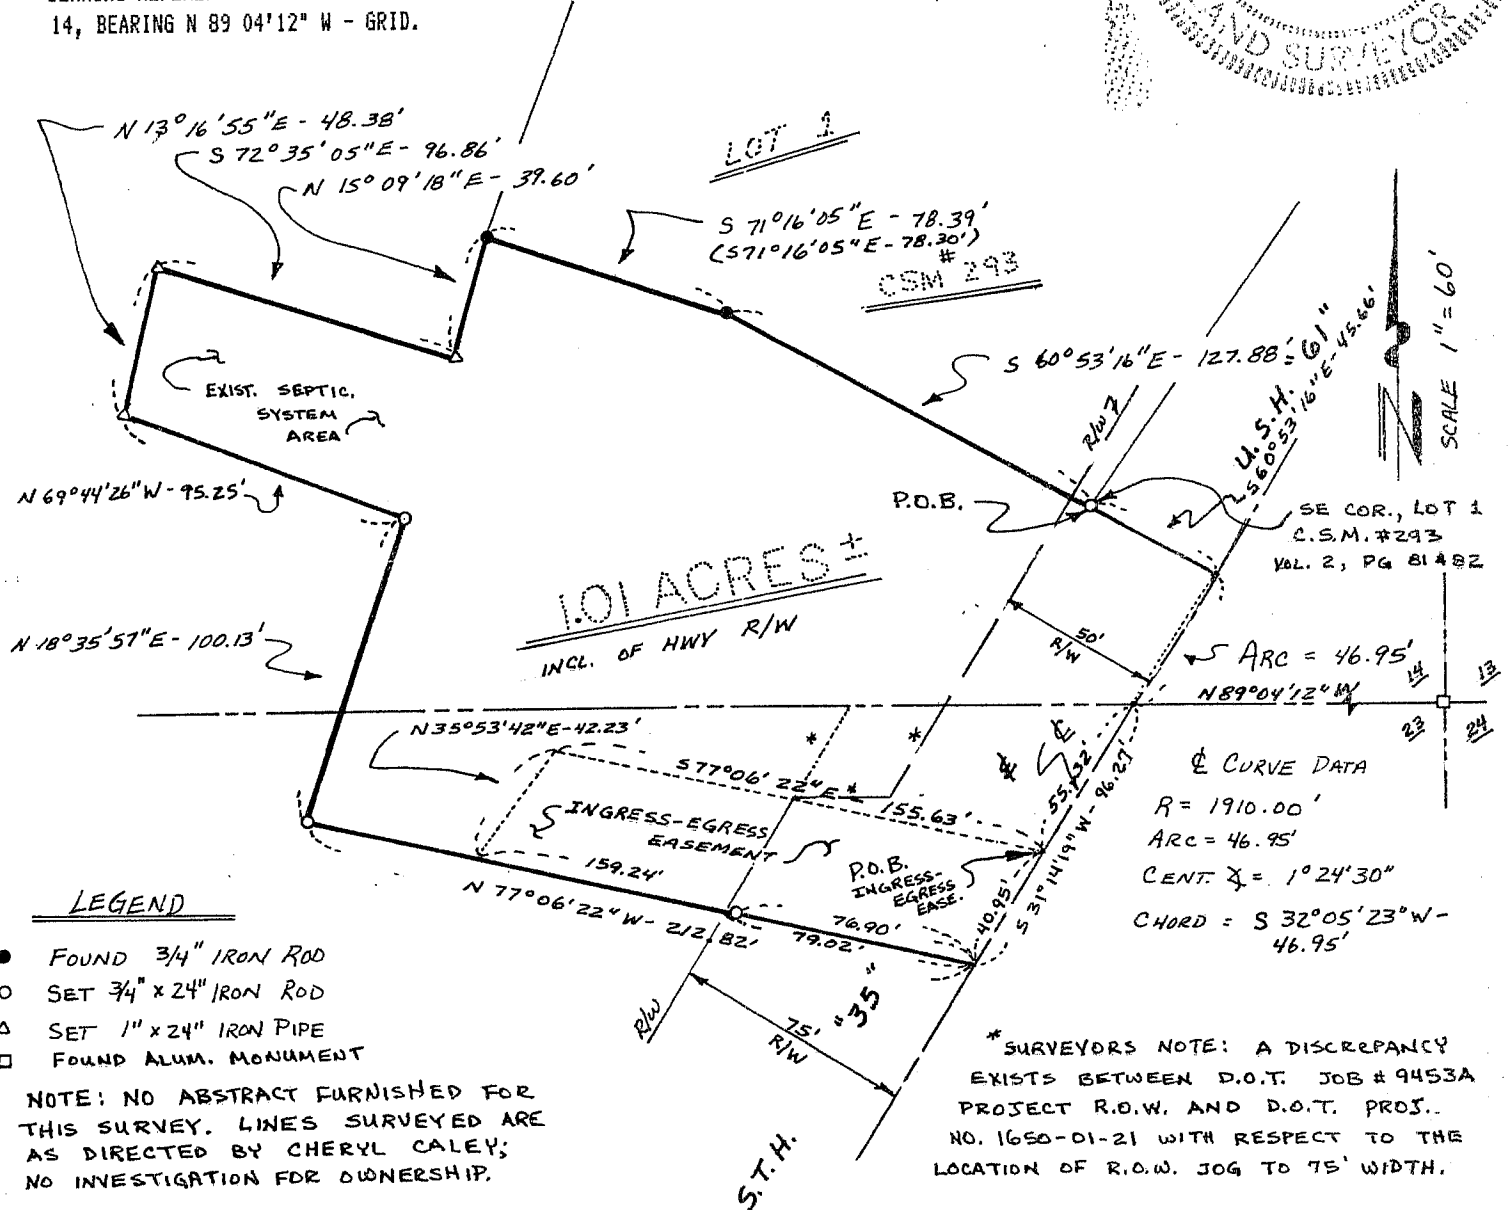 14, BEARING N 89 04'12" W - GRID.
LAND SURVEYOR
N 13°16'55"E - 48.38'
S 72°35'05"E - 96.86'
N 15°09'18"E - 39.60'
LOT 1
S 71°16'05"E - 78.39'
(S71°16'05"E - 78.30')
CSM # 293
S 60°53'16"E - 127.88'
U.S.H. "61"
S60°53'16"E - 45.66'
SCALE 1" = 60'
N
R/W
EXIST. SEPTIC.
SYSTEM
AREA
N 69°44'26"W - 95.25'
P.O.B.
SE COR., LOT 1
C.S.M. #293
VOL. 2, PG 81 & 82
1.01 ACRES ±
INCL. OF HWY R/W
50'
R/W
N 18°35'57"E - 100.13'
ARC = 46.95'
N89°04'12"W
14 13
23 24
N35°53'42"E - 42.23'
* *
S77°06'22"E * 155.63'
℄ ℄
55.32'
S 31°14'19" W - 96.27'
40.95'
INGRESS-EGRESS
EASEMENT
P.O.B.
INGRESS-
EGRESS
EASE.
159.24'
N 77°06'22"W - 212.82'
76.90'
79.02'
℄ CURVE DATA
R = 1910.00'
ARC = 46.95'
CENT. ∡ = 1°24'30"
CHORD = S 32°05'23"W -
46.95'
R/W
75'
R/W
S.T.H. "35"
LEGEND
● FOUND 3/4" IRON ROD
○ SET 3/4" x 24" IRON ROD
△ SET 1" x 24" IRON PIPE
□ FOUND ALUM. MONUMENT
NOTE: NO ABSTRACT FURNISHED FOR
THIS SURVEY. LINES SURVEYED ARE
AS DIRECTED BY CHERYL CALEY;
NO INVESTIGATION FOR OWNERSHIP.
*SURVEYORS NOTE: A DISCREPANCY
EXISTS BETWEEN D.O.T. JOB # 9453A
PROJECT R.O.W. AND D.O.T. PROJ..
NO. 1650-01-21 WITH RESPECT TO THE
LOCATION OF R.O.W. JOG TO 75' WIDTH.